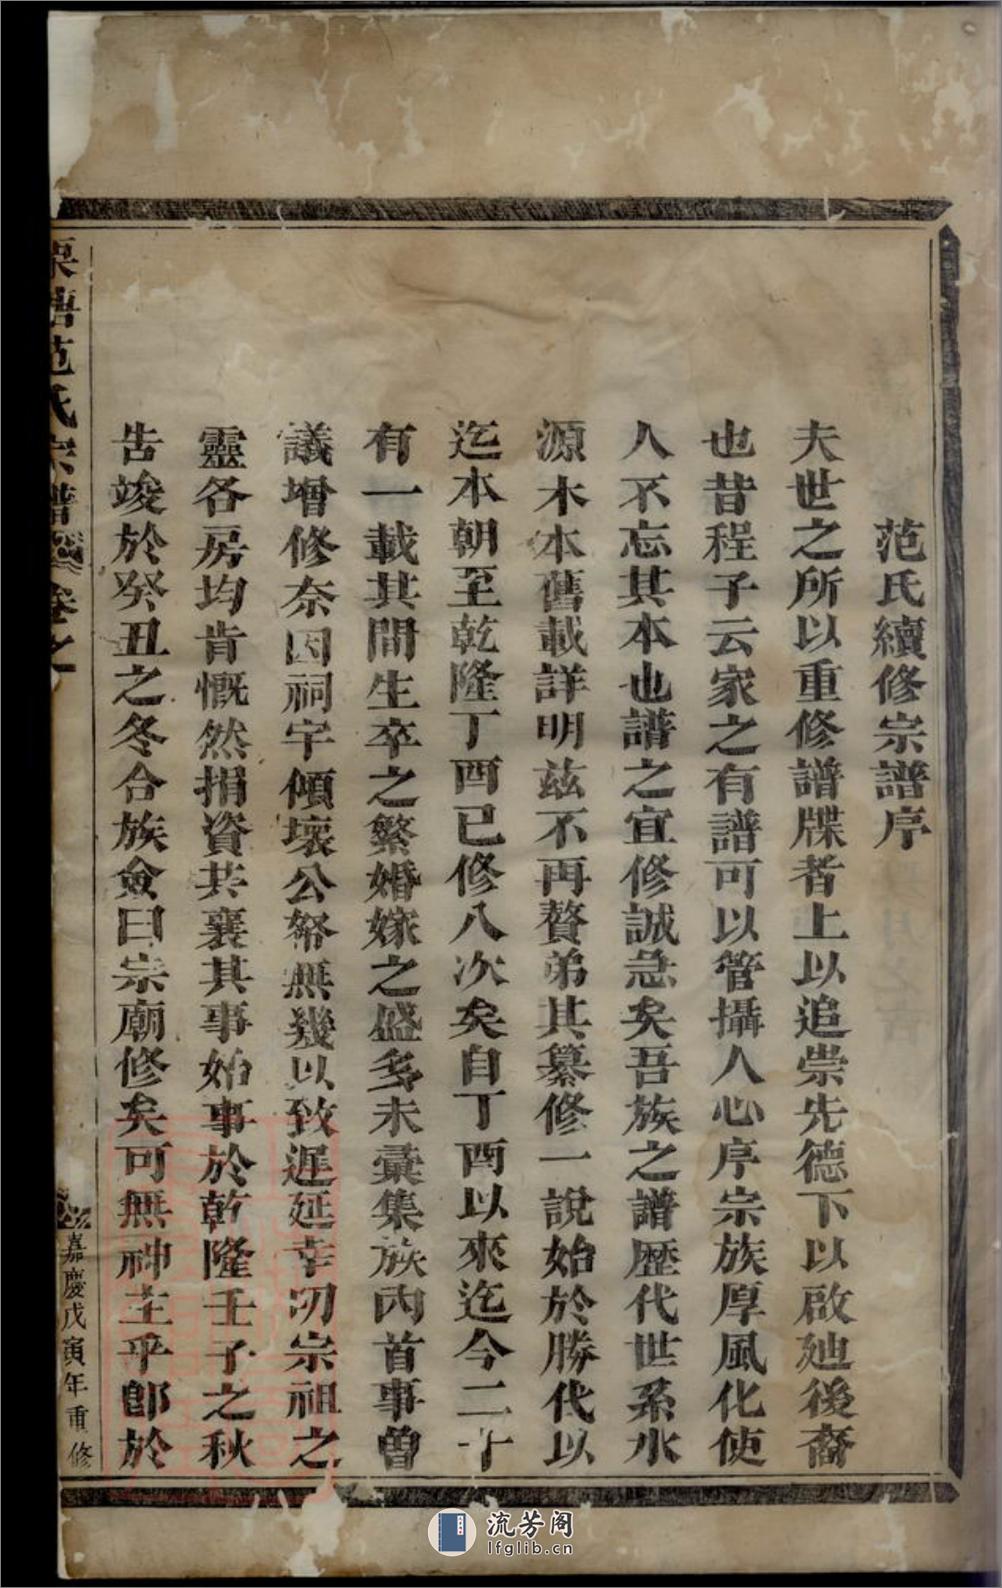 范氏續修宗譜序
夫世之所以重修譜牒者上以追崇先德下以啟廸後裔
也昔程子云家之有譜可以管攝人心序宗族厚風化使
人不忘其本也譜之宜修誠急矣吾族之譜歷代世系水
源木本舊載詳明茲不再贅弟其纂修一說始於勝代以
迄本朝至乾隆丁酉已修八次矣自丁酉以來迄今二十
有一載其間生卒之繁婚嫁之盛多未彙集族內首事曾
議增修奈因祠宇傾壞公帑無幾以致遲延幸沏宗祖之
靈各房均肯慨然捐資共襄其事始事於乾隆壬子之秋
告竣於癸丑之冬合族僉曰宗廟修矣可無神主乎即於
塘范氏宗譜 卷之
嘉慶戊寅年重修
流芳阁
lfglib.cn